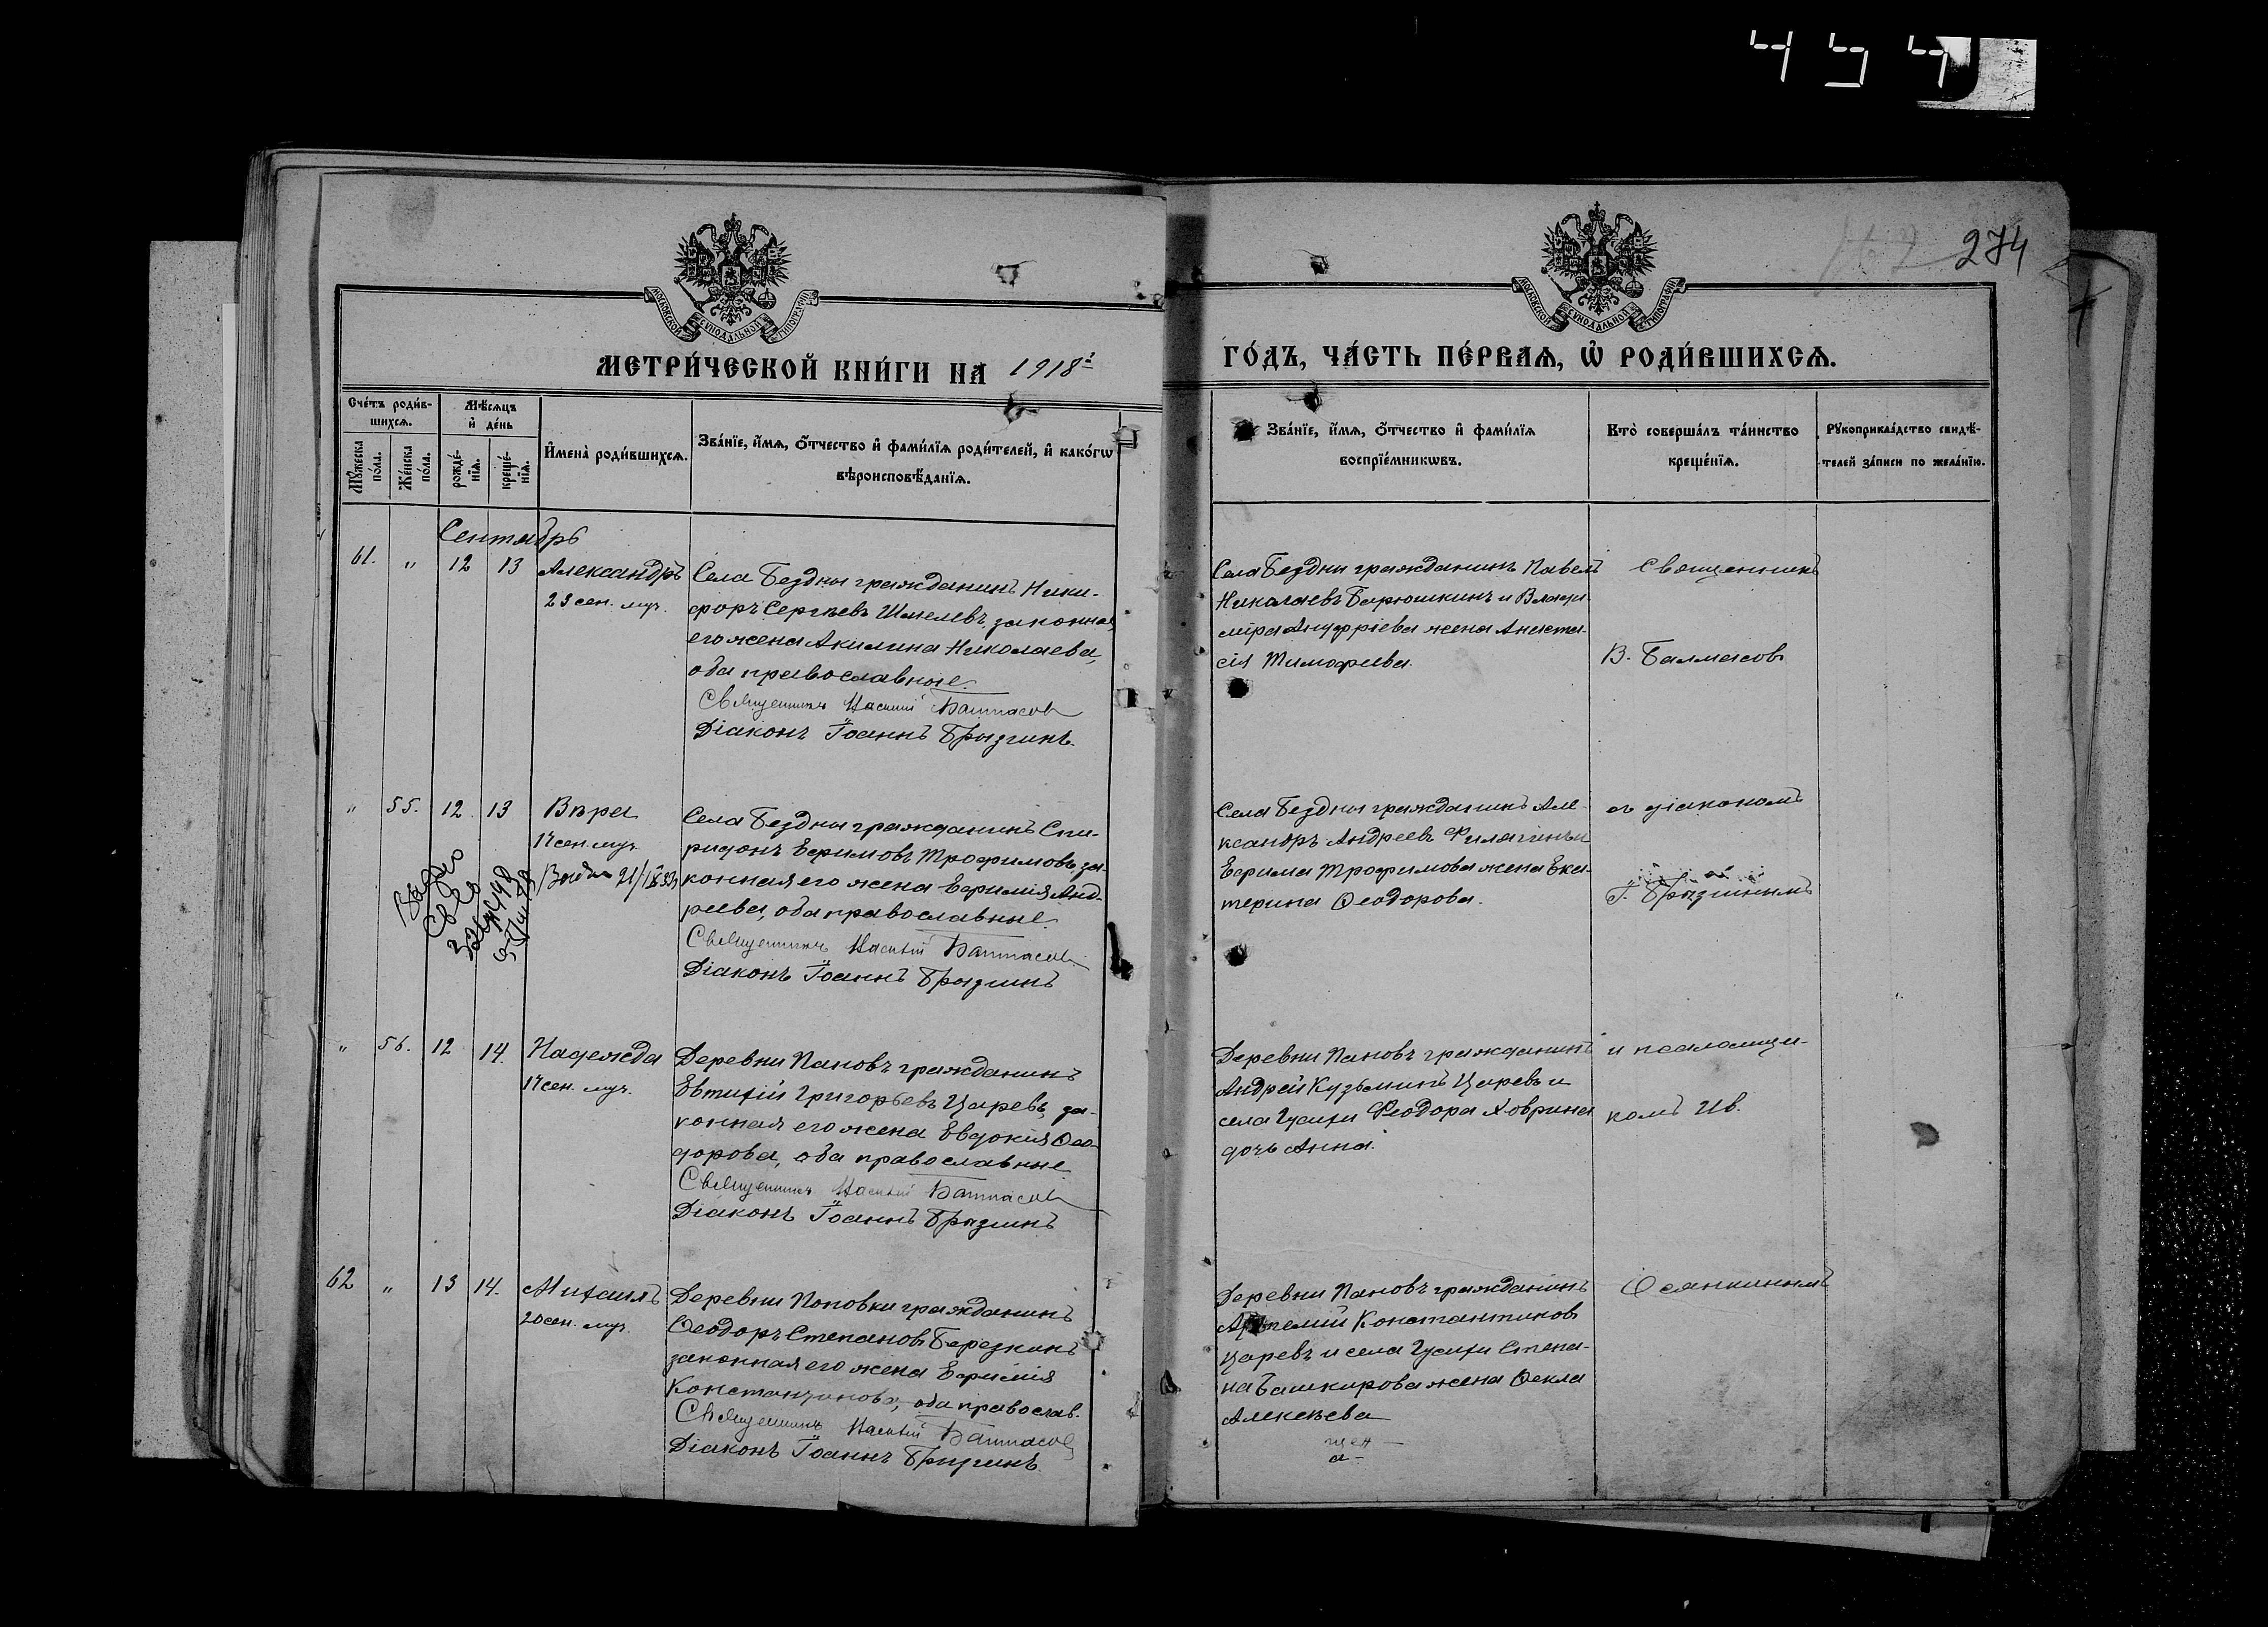 454
274
МОСКОВСКОЙ СѴНОДАЛЬНОЙ ТИПОГРАФІИ
МОСКОВСКОЙ СѴНОДАЛЬНОЙ ТИПОГРАФІИ
МЕТРИ́ЧЕСКОЙ КНИ́ГИ НА 1918 г.
ГО́ДЪ, ЧА́СТЬ ПЕ́РВАѦ, Ѡ РОДИ́ВШИХСѦ.
Сче́тъ роди́в-
шихсѧ.
Мꙋ́жеска по́ла.
Же́нска по́ла.
Мѣ́сѧцъ
и҆ де́нь
рожде́-
нїѧ.
креще́-
нїѧ.
И҆мена̀ роди́вшихсѧ.
Зва́нїе, и҆́мѧ, ѻ҆́тчество и҆ фами́лїѧ роди́телей, и҆ како́гѡ
вѣроисповѣ́данїѧ.
Зва́нїе, и҆́мѧ, ѻ҆́тчество и҆ фами́лїѧ
воспрїе́мникѡвъ.
Кто̀ соверша́лъ та́инство
креще́нїѧ.
Рꙋкоприкла́дство свидѣ́-
телей за́писи по жела́нїю.
Сентябрь
61. " 12 13 Александръ
23 сен. муч.
Села Бездны гражданинъ Ники-
форъ Сергѣевъ Шмелевъ, законная
его жена Акилина Николаева,
оба православные.
Священникъ Василій Балмасов
Діаконъ Іоаннъ Брызгинъ.
Села Бездны гражданинъ Павелъ
Николаевъ Барюшкинъ и Влади-
міра Ануфріева жена Анаста-
сія Тимофеева.
Священникъ
В. Балмасовъ
" 55. 12 13 Вѣра
17 сен. муч.
Села Бездны гражданинъ Спи-
ридонъ Ефимовъ Трофимовъ, за-
конная его жена Евфимія Анд-
реева, оба православные.
Священникъ Василій Балмасов
Діаконъ Іоаннъ Брызгинъ
Села Бездны гражданинъ Але-
ксандръ Андреевъ Филагинъ и
Ефима Трофимова жена Ека-
терина Ѳеодорова.
съ діакономъ
І. Брызгинымъ
" 56. 12 14. Надежда
17 сен. муч.
Деревни Пановъ гражданинъ
Евтихій Григорьевъ Царевъ, за-
конная его жена Евдокія Ѳео-
дорова, оба православные
Священникъ Василій Балмасов
Діаконъ Іоаннъ Брызгинъ
Деревни Пановъ гражданинъ
Андрей Кузьминъ Царевъ и
села Гусихи Феодора Ховрина
дочь Анна.
и псаломщи-
комъ Ив.
62 " 13 14. Михаилъ
20 сен. муч.
Деревни Поповки гражданинъ
Ѳеодоръ Степановъ Березкинъ
законная его жена Евфимія
Константинова, оба православ.
Священникъ Василій Балмасов
Діаконъ Іоаннъ Брызгинъ
Деревни Пановъ гражданинъ
Артемій Константиновъ
Царевъ и села Гусихи Степа-
на Башкирова жена Ѳекла
Алексѣева
Осянкинымъ